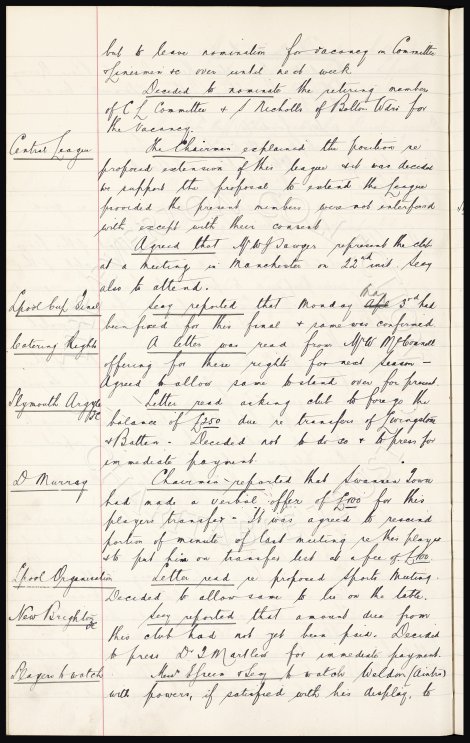 but to leave nomination for vacancy on Committee
& Linesmen &c over until next week
Decided to nominate the retiring members
of C L Committee & S Nicholls of Bolton Wdrs for
the vacancy.
Central League
The Chairman explained the position re
proposed extension of this league & it was decided
to support the proposal to extend the League
provided the present members were not interfered
with except with their consent
Agreed that Mr W J Sawyer represent the club
at a meeting in Manchester on 22nd inst. Secy
also to attend.
Lpool Cup Final
Secy reported that Monday Apl May 3rd had
been fixed for this final & same was confirmed.
Catering Rights
A letter was read from Mr W McConnell
offering for these rights for next season –
Agreed to allow same to stand over for present.
Plymouth Argyle FC
Letter read asking club to forego the
balance of £250 due re transfers of Livingstone
& Batten. Decided not to do so & to press for
immediate payment.
D Murray
Chairman reported that Swansea Town
had made a verbal offer of £100 for this
players transfer – It was agreed to rescind
portion of minute of last meeting re this player
& to put him on transfer list at a fee of £100.
Lpool Organisation
Letter read re proposed Sports Meeting.
Decided to allow same to lie on the table.
New Brighton FC
Secy reported that amount due from
this club had not yet been paid. Decided
to press Dr T Martlew for immediate payment.
Players to watch
Messrs Green & Secy to watch Weldon (Airdrie)
with powers, if satisfied with his display, to